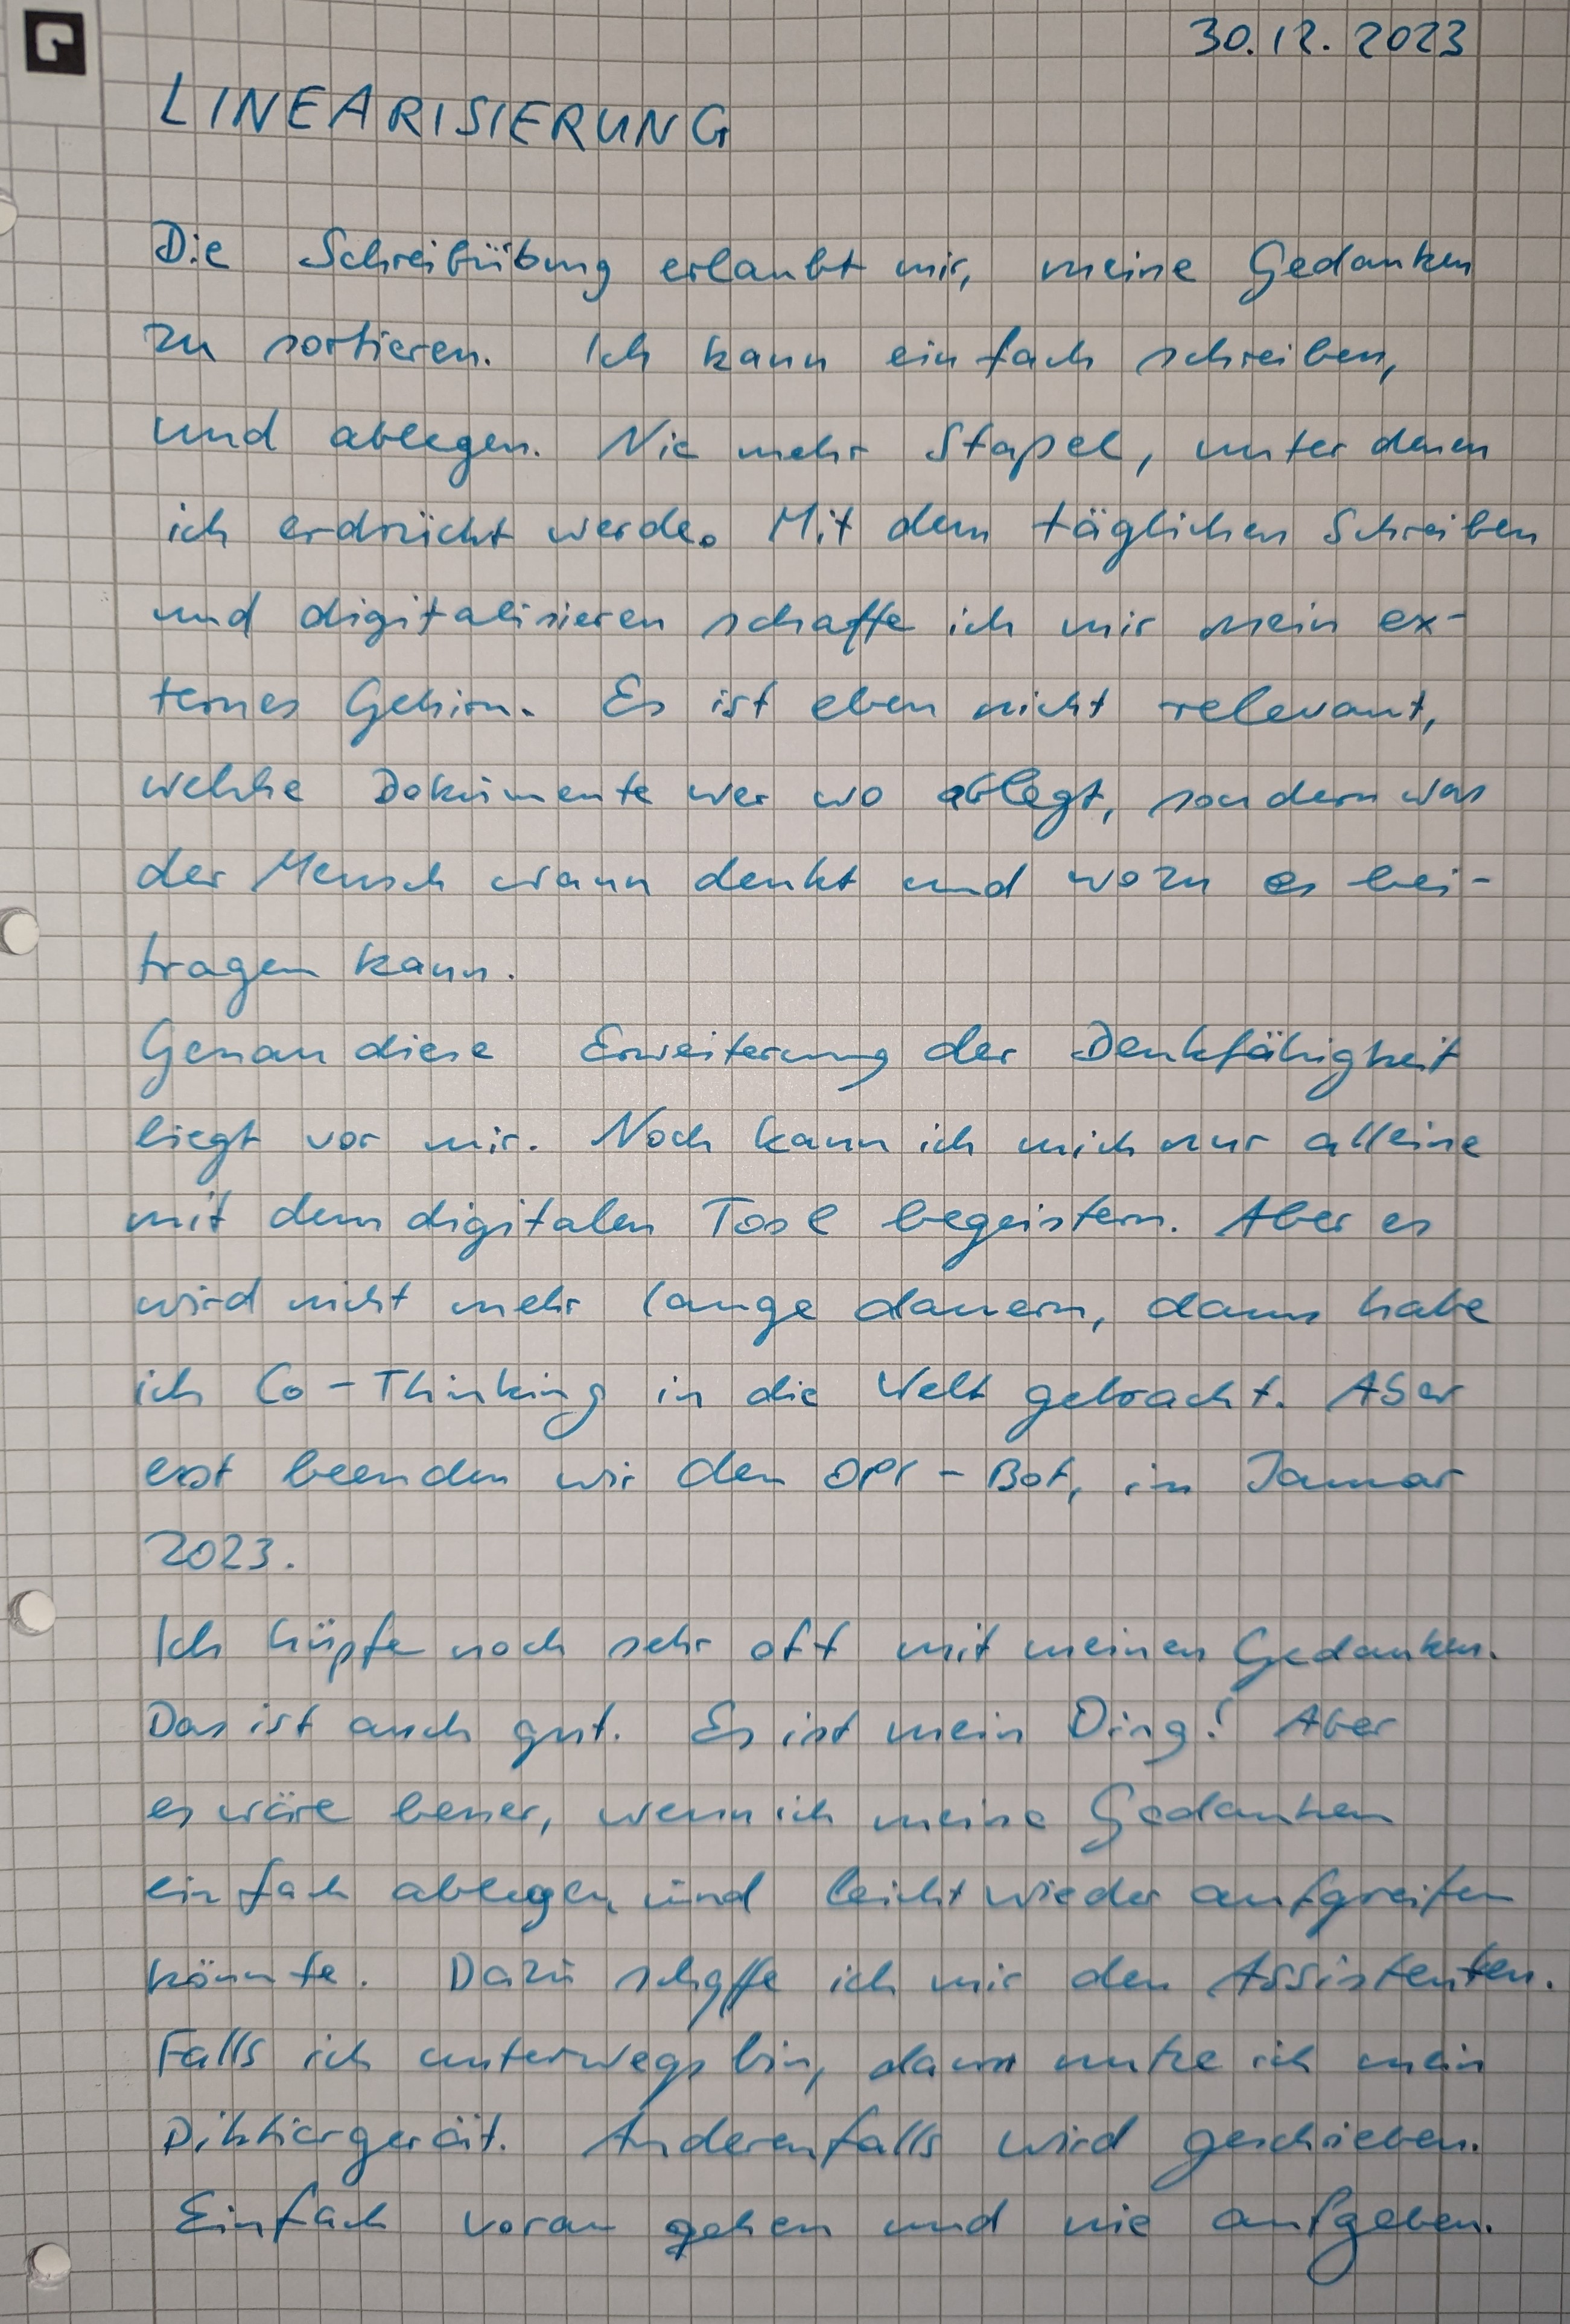 30.12.2023
LINEARISIERUNG
Die Schreibübung erlaubt mir, meine Gedanken
zu sortieren. Ich kann einfach schreiben,
und ablegen. Nie mehr Stapel, unter denen
ich erdrückt werde. Mit dem täglichen Schreiben
und digitalisieren schaffe ich mir mein ex-
ternes Gehirn. Es ist eben nicht relevant,
welche Dokumente wer wo ablegt, sondern was
der Mensch wann denkt und wozu es bei-
tragen kann.
Genau diese Erweiterung der Denkfähigkeit
liegt vor mir. Noch kann ich mich nur alleine
mit dem digitalen Tool begeistern. Aber es
wird nicht mehr lange dauern, dann habe
ich Co-Thinking in die Welt gebracht. Aber
erst beenden wir den OPI-Bot, im Januar
2023.
Ich hüpfe noch sehr oft mit meinen Gedanken.
Das ist auch gut. Es ist mein Ding! Aber
es wäre besser, wenn ich meine Gedanken
einfach ablegen, und leicht wieder aufgreifen
könnte. Dazu schaffe ich mir den Assistenten.
Falls ich unterwegs bin, dann nutze ich mein
Diktiergerät. Anderenfalls wird geschrieben.
Einfach voran gehen und nie aufgeben.